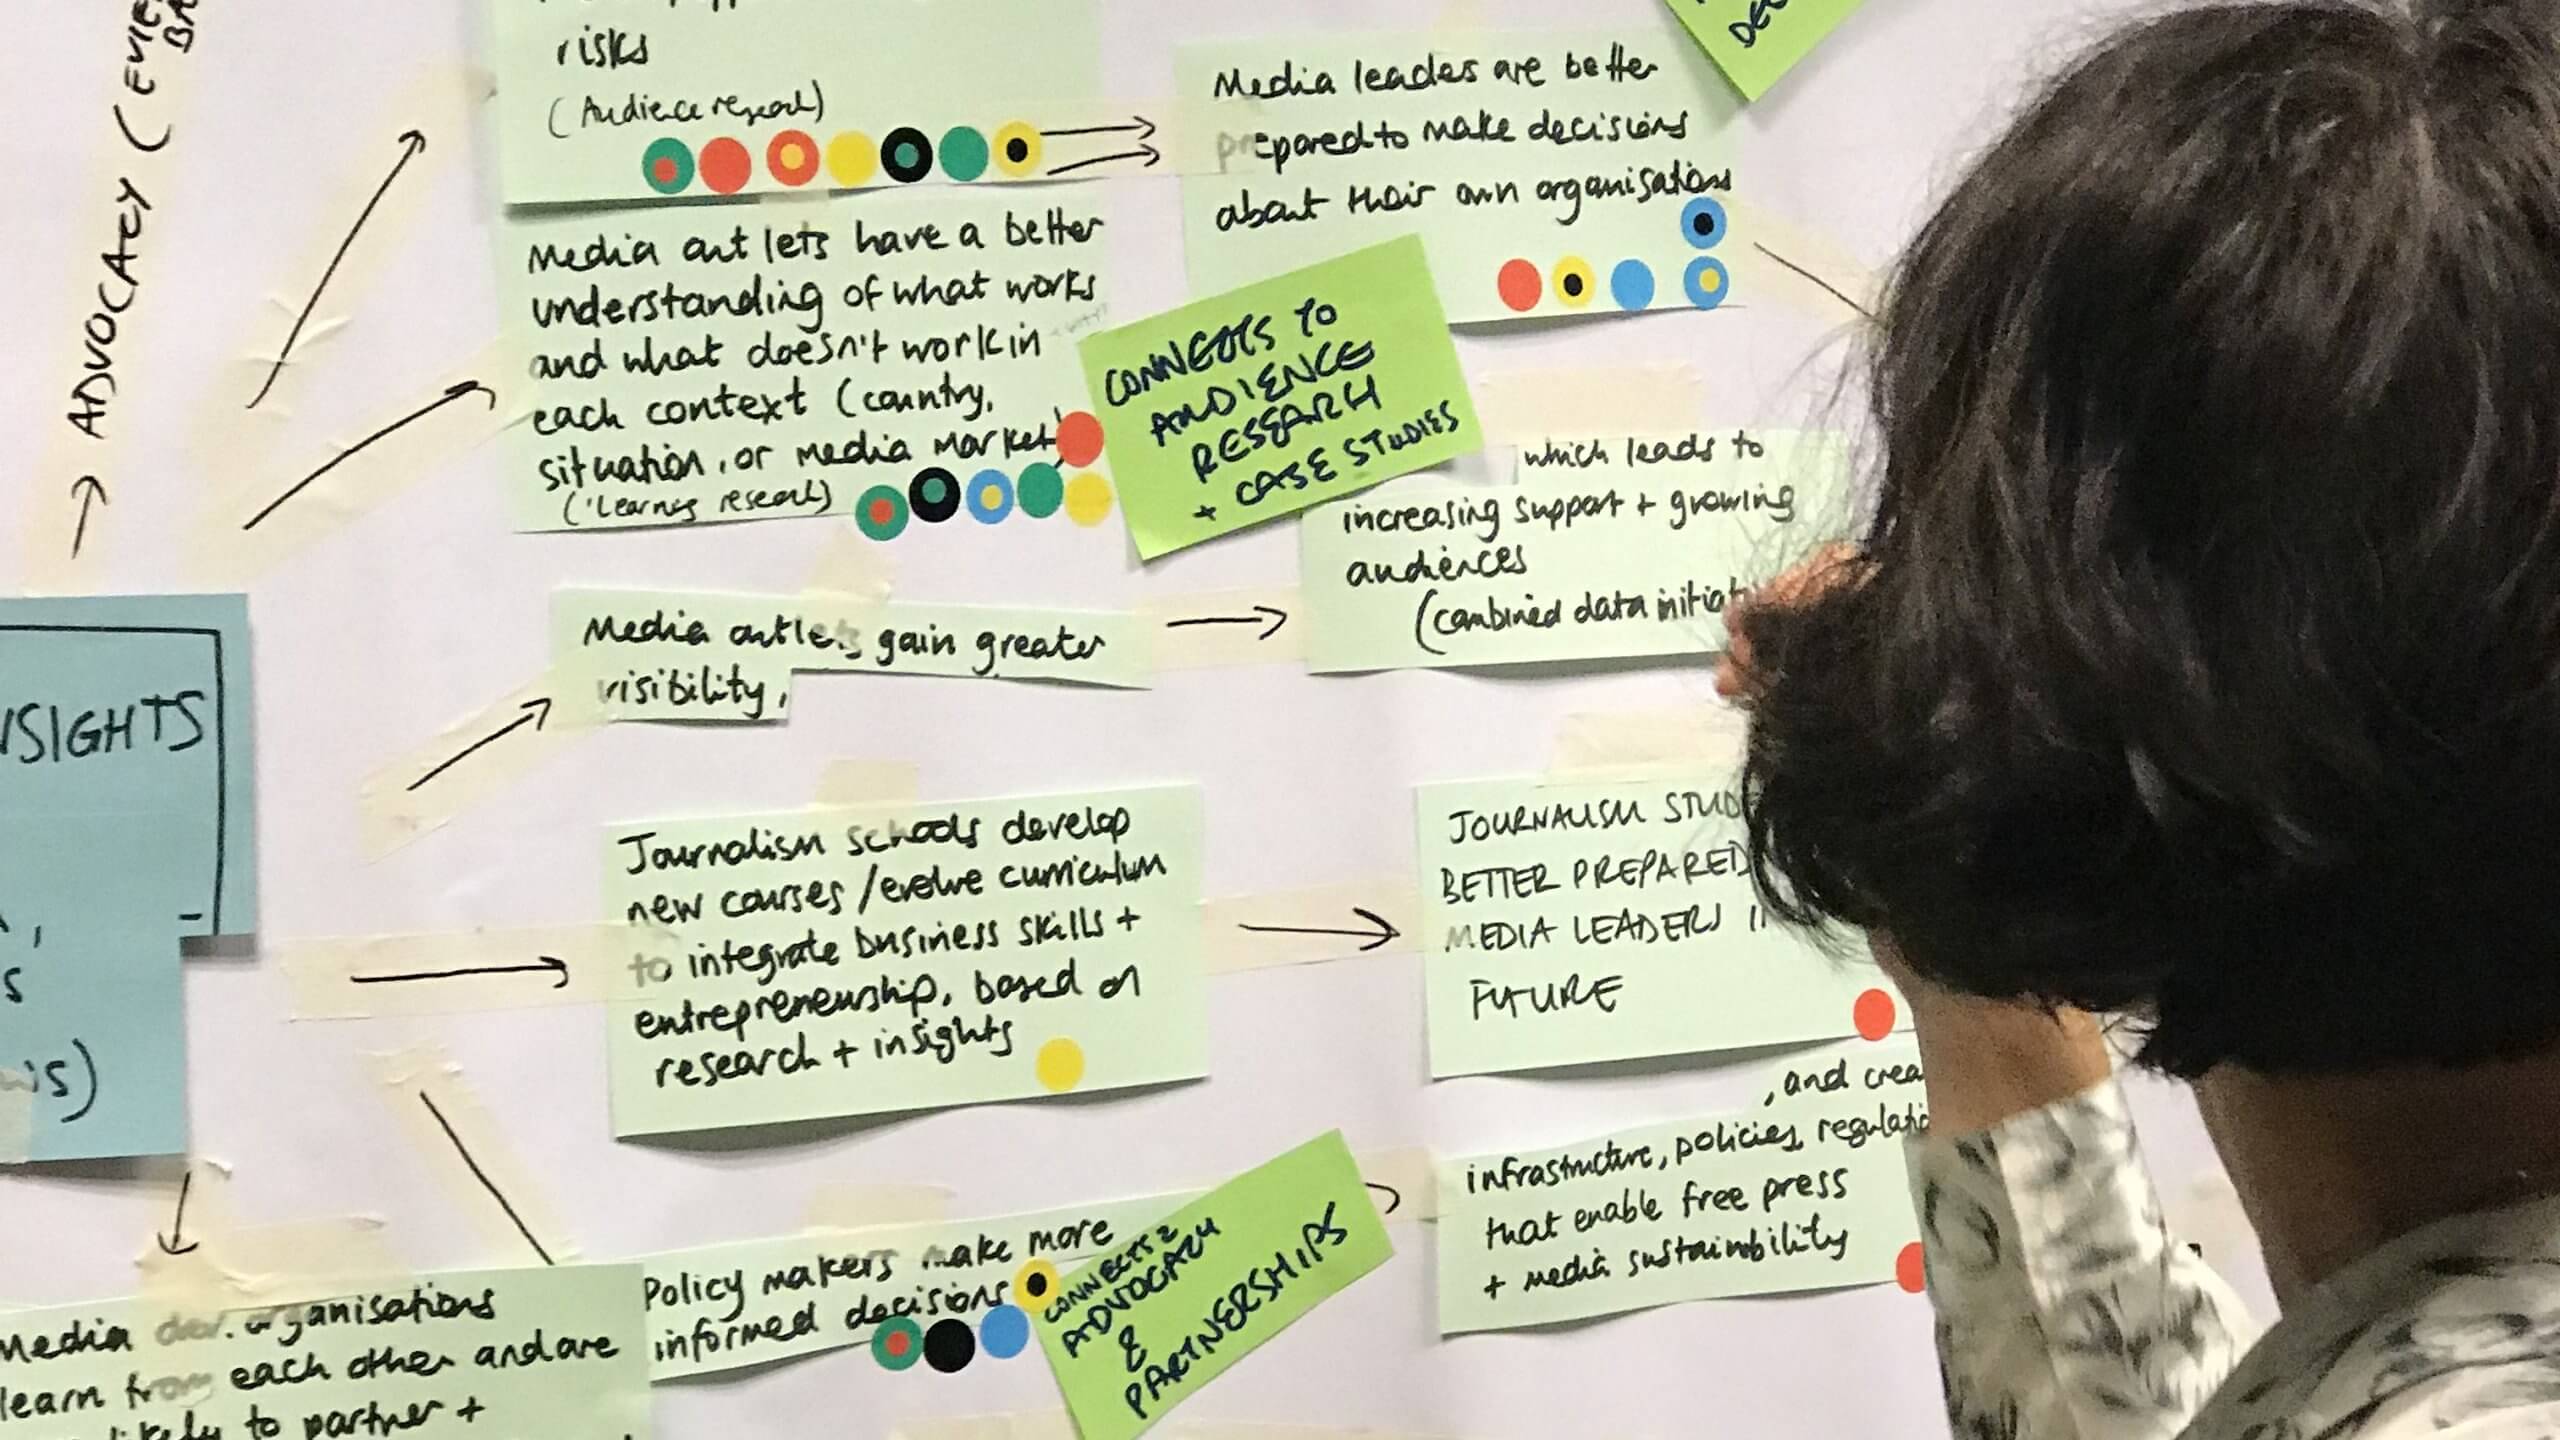 ADVOCACY (
risks
(Audience research)
Media outlets have a better
understanding of what works
and what doesn't work in
each context (country,
situation, or media market)
('Learning research)
Media leaders are better
prepared to make decisions
about their own organisations
CONNECTS TO
AUDIENCE
RESEARCH
+ CASE STUDIES
Media outlets gain greater
visibility,
which leads to
increasing support + growing
audiences
(combined data
Journalism schools develop
new courses /evolve curriculum
to integrate business skills +
entrepreneurship, based on
research + insights
JOURNALISM
BETTER PREPARED
MEDIA LEADERS
FUTURE
Policy makers make more
informed decisions
CONNECTS 2
ADVOCACY
&
PARTNERSHIPS
, and
infrastructure, policies,
that enable free press
+ media sustainability
Media dev. organisations
learn from each other and are
likely to partner +